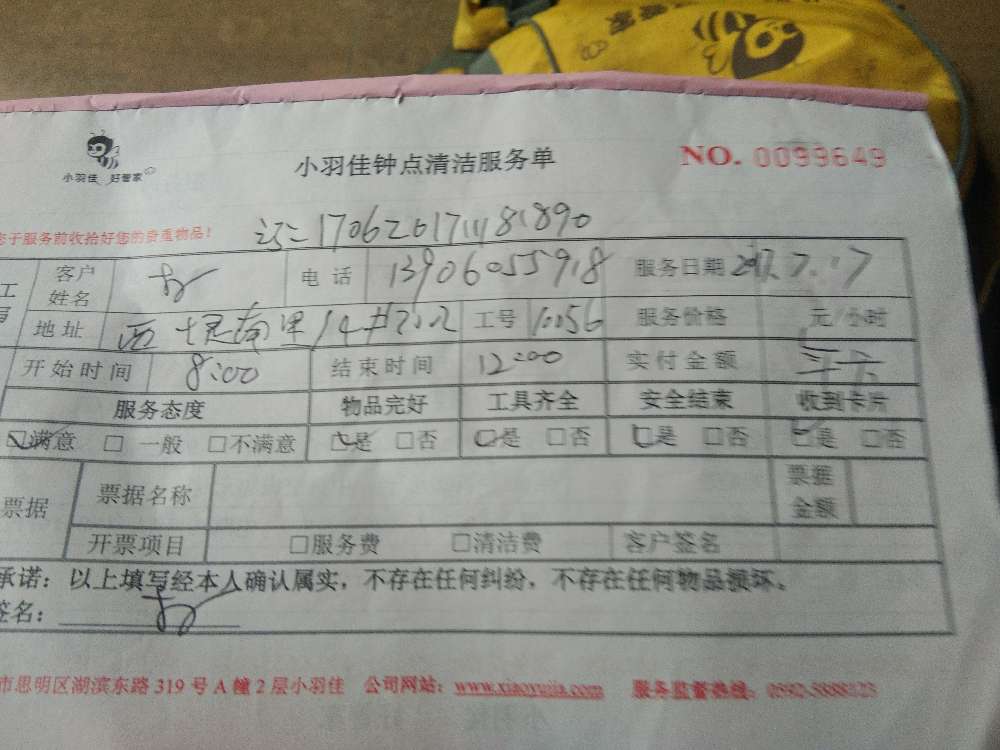 小羽佳 好管家
小羽佳钟点清洁服务单
NO. 0099649
于服务前收拾好您的贵重物品!
1706201711181890
客户姓名 电话 13906055918 服务日期 2017.7.17
地址 西堤南里14#202 工号 10056 服务价格 元/小时
开始时间 8:00 结束时间 12:00 实付金额 年卡
服务态度 物品完好 工具齐全 安全结束 收到卡片
☑满意 □一般 □不满意 ☑是 □否 ☑是 □否 ☑是 □否 ☑是 □否
票据 票据名称 票据金额
开票项目 □服务费 □清洁费 客户签名
承诺:以上填写经本人确认属实,不存在任何纠纷,不存在任何物品损坏。
签名:
市思明区湖滨东路 319 号 A 幢 2 层小羽佳 公司网站:www.xiaoyujia.com 服务监督热线:0592-5888123